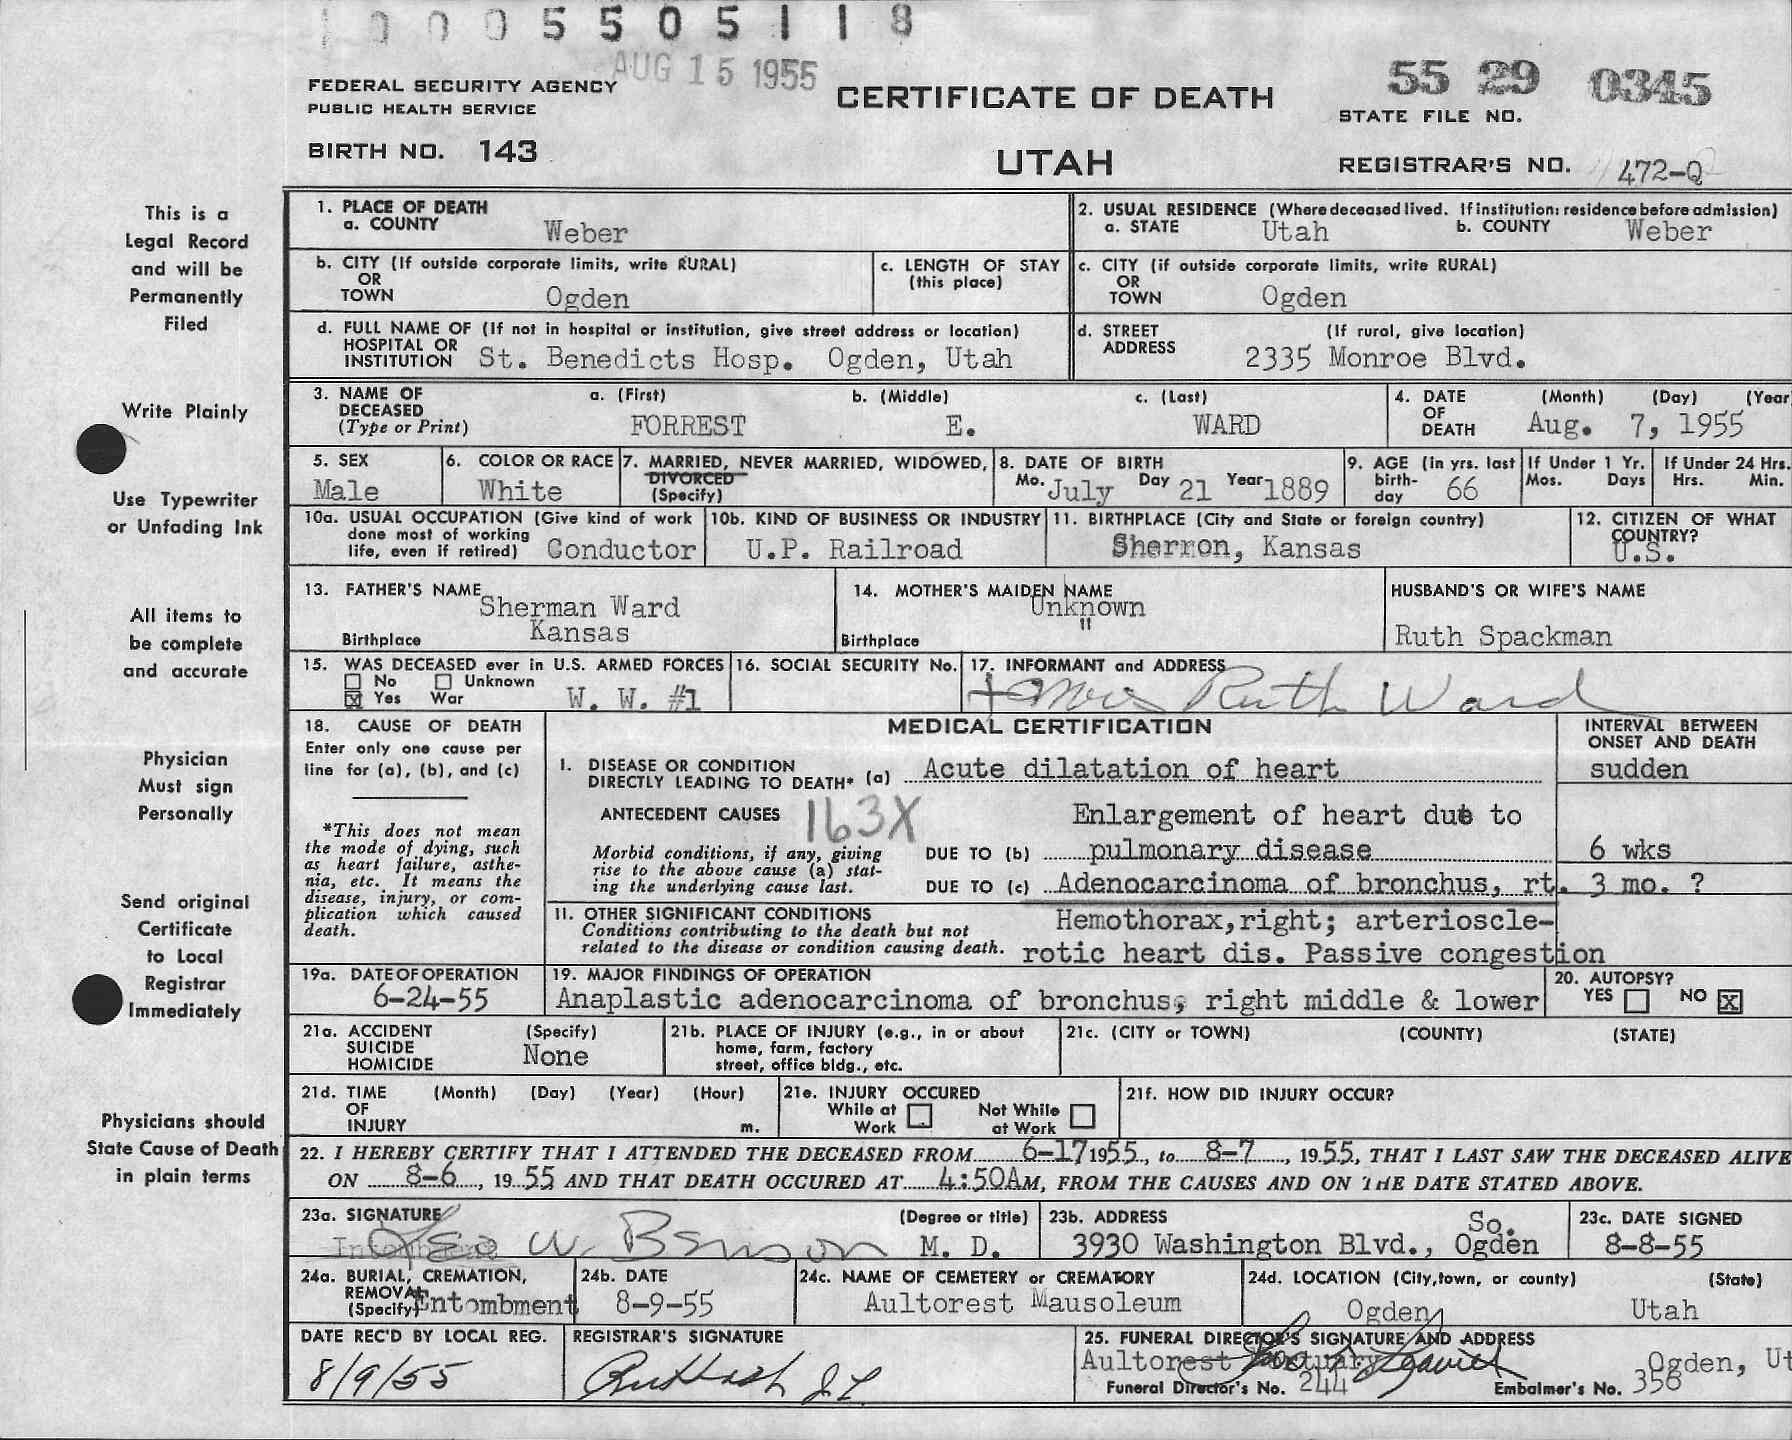 1 0 0 0 5 5 0 5 1 1 8
AUG 15 1955
FEDERAL SECURITY AGENCY
PUBLIC HEALTH SERVICE
BIRTH NO. 143
CERTIFICATE OF DEATH
UTAH
55 29 0345
STATE FILE NO.
REGISTRAR'S NO. 472-Q
This is a
Legal Record
and will be
Permanently
Filed
Write Plainly
Use Typewriter
or Unfading Ink
All items to
be complete
and accurate
Physician
Must sign
Personally
Send original
Certificate
to Local
Registrar
Immediately
Physicians should
State Cause of Death
in plain terms
1. PLACE OF DEATH
a. COUNTY Weber
2. USUAL RESIDENCE (Where deceased lived. If institution: residence before admission)
a. STATE Utah b. COUNTY Weber
b. CITY (If outside corporate limits, write RURAL)
OR
TOWN Ogden
c. LENGTH OF STAY
(this place)
c. CITY (if outside corporate limits, write RURAL)
OR
TOWN Ogden
d. FULL NAME OF (If not in hospital or institution, give street address or location)
HOSPITAL OR
INSTITUTION St. Benedicts Hosp. Ogden, Utah
d. STREET (If rural, give location)
ADDRESS
2335 Monroe Blvd.
3. NAME OF a. (First) b. (Middle) c. (Last)
DECEASED
(Type or Print) FORREST E. WARD
4. DATE (Month) (Day) (Year
OF
DEATH Aug. 7, 1955
5. SEX
Male
6. COLOR OR RACE
White
7. MARRIED, NEVER MARRIED, WIDOWED,
DIVORCED
(Specify)
8. DATE OF BIRTH
Mo. July Day 21 Year 1889
9. AGE (in yrs. last
birth-
day 66
If Under 1 Yr.
Mos. Days
If Under 24 Hrs.
Hrs. Min.
10a. USUAL OCCUPATION (Give kind of work
done most of working
life, even if retired) Conductor
10b. KIND OF BUSINESS OR INDUSTRY
U.P. Railroad
11. BIRTHPLACE (City and State or foreign country)
Sherron, Kansas
12. CITIZEN OF WHAT
COUNTRY?
U.S.
13. FATHER'S NAME Sherman Ward
Birthplace Kansas
14. MOTHER'S MAIDEN NAME
Unknown
Birthplace "
HUSBAND'S OR WIFE'S NAME
Ruth Spackman
15. WAS DECEASED ever in U.S. ARMED FORCES
No Unknown
X Yes War W. W. #1
16. SOCIAL SECURITY No.
17. INFORMANT and ADDRESS
Mrs Ruth Ward
18. CAUSE OF DEATH
Enter only one cause per
line for (a), (b), and (c)
*This does not mean
the mode of dying, such
as heart failure, asthe-
nia, etc. It means the
disease, injury, or com-
plication which caused
death.
MEDICAL CERTIFICATION
INTERVAL BETWEEN
ONSET AND DEATH
I. DISEASE OR CONDITION
DIRECTLY LEADING TO DEATH* (a) Acute dilatation of heart sudden
ANTECEDENT CAUSES 163X Enlargement of heart due to
Morbid conditions, if any, giving
rise to the above cause (a) stat-
ing the underlying cause last.
DUE TO (b) pulmonary disease 6 wks
DUE TO (c) Adenocarcinoma of bronchus, rt. 3 mo. ?
II. OTHER SIGNIFICANT CONDITIONS
Conditions contributing to the death but not
related to the disease or condition causing death.
Hemothorax, right; arterioscle-
rotic heart dis. Passive congestion
19a. DATE OF OPERATION
6-24-55
19. MAJOR FINDINGS OF OPERATION
Anaplastic adenocarcinoma of bronchus, right middle & lower
20. AUTOPSY?
YES NO X
21a. ACCIDENT (Specify)
SUICIDE
HOMICIDE None
21b. PLACE OF INJURY (e.g., in or about
home, farm, factory
street, office bldg., etc.
21c. (CITY or TOWN) (COUNTY) (STATE)
21d. TIME (Month) (Day) (Year) (Hour)
OF
INJURY m.
21e. INJURY OCCURED
While at Work Not While at Work
21f. HOW DID INJURY OCCUR?
22. I HEREBY CERTIFY THAT I ATTENDED THE DECEASED FROM 6-17 1955, to 8-7, 1955, THAT I LAST SAW THE DECEASED ALIVE
ON 8-6, 1955 AND THAT DEATH OCCURED AT 4:50AM, FROM THE CAUSES AND ON THE DATE STATED ABOVE.
23a. SIGNATURE (Degree or title)
Leo W. Benson M. D.
23b. ADDRESS
So.
3930 Washington Blvd., Ogden
23c. DATE SIGNED
8-8-55
24a. BURIAL, CREMATION,
REMOVAL
(Specify) Entombment
24b. DATE
8-9-55
24c. NAME OF CEMETERY or CREMATORY
Aultorest Mausoleum
24d. LOCATION (City, town, or county) (State)
Ogden Utah
DATE REC'D BY LOCAL REG.
8/9/55
REGISTRAR'S SIGNATURE
25. FUNERAL DIRECTOR'S SIGNATURE AND ADDRESS
Aultorest Mortuary Ogden, Ut
Funeral Director's No. 244 Embalmer's No. 358